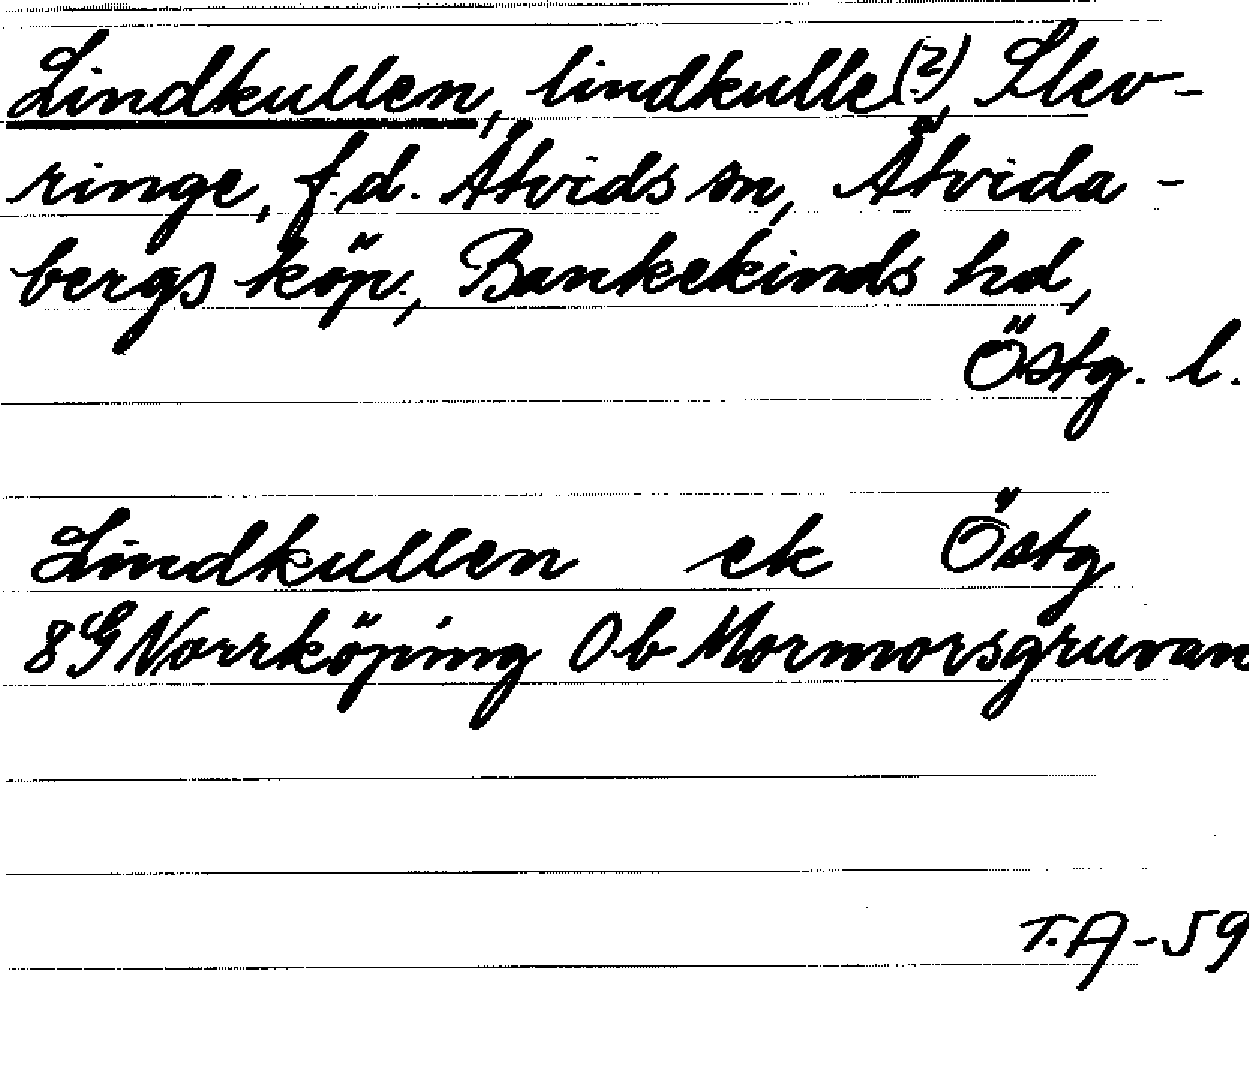 Lindkullen, lindkulle(?), Slev-
ringe, f.d. Åtvids sn, Åtvida-
bergs köp., Bankekinds hd,
Östg. l.
Lindkullen ek Östg
8G Norrköping 0b Mormorsgruvan
T.A-59